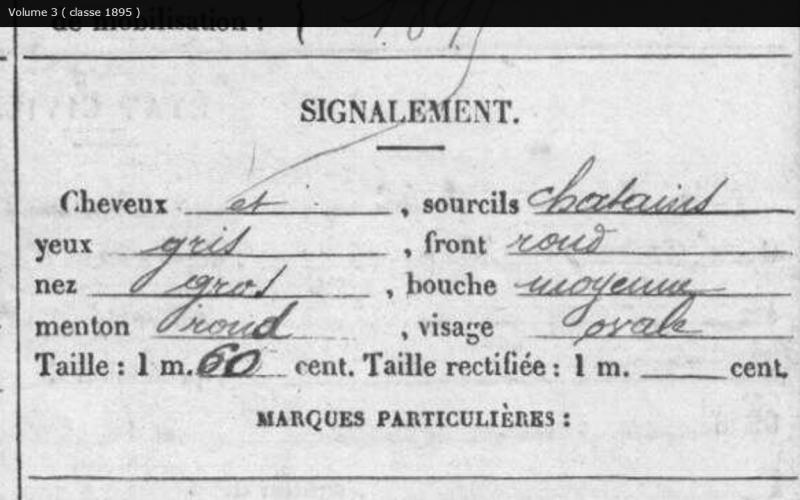 Volume 3 ( classe 1895 )
de mobilisation : {
SIGNALEMENT.
Cheveux et , sourcils chatains
yeux gris , front rond
nez gros , bouche moyenne
menton rond , visage ovale
Taille : 1 m. 60 cent. Taille rectifiée : 1 m. ____ cent.
MARQUES PARTICULIÈRES :